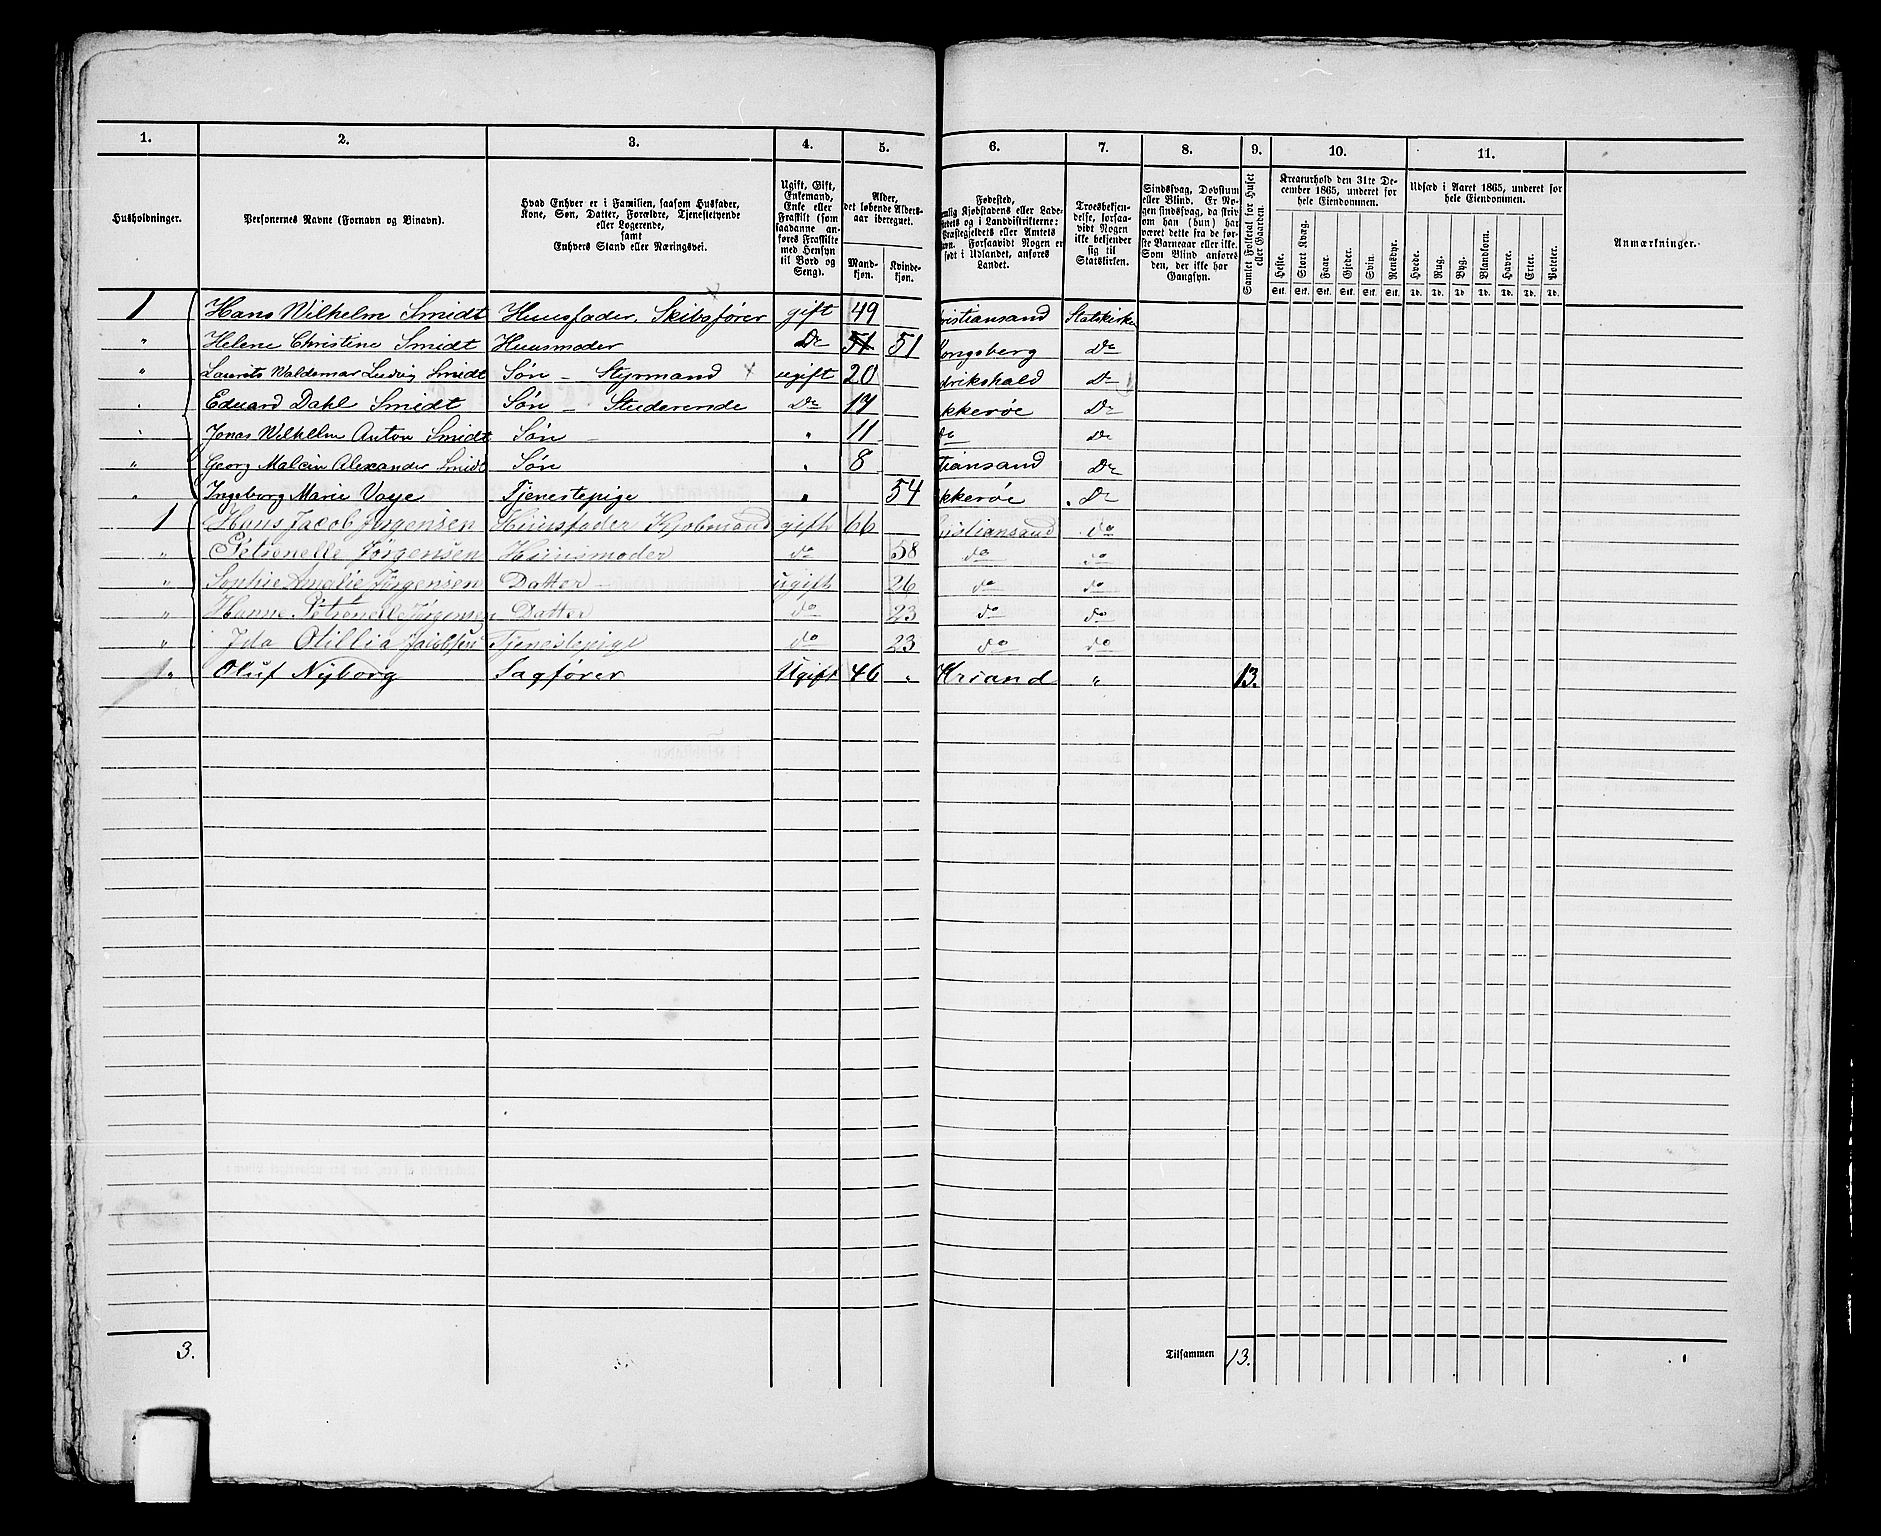 1. 2. 3. 4. 5. 6. 7. 8. 9. 10. 11.
Husholdninger.
Personernes Navne (Fornavn og Binavn).
Hvad Enhver er i Familien, saasom Husfader,
Kone, Søn, Datter, Forældre, Tjenestetyende
eller Logerende,
samt
Enhvers Stand eller Næringsvei.
Ugift, Gift,
Enkemand,
Enke eller
Fraskilt (som
saadanne an-
føres Fraskilte
med Hensyn
til Bord og
Seng).
Alder,
det løbende Alders-
aar iberegnet.
Mand-
kjøn.
Kvinde-
kjøn.
Fødested,
nlig Kjøbstadens eller Lade-
stedets og i Landdistrikterne:
Præstegjeldets eller Amtets
avn. Forsaavidt Nogen er
født i Udlandet, anføres
Landet.
Troesbekjen-
delse, forsaa-
vidt Nogen
ikke bekjender
sig til
Statskirken.
Sindssvag, Døvstum
eller Blind. Er No-
gen sindssvag, da skriv
om han (hun) har
været dette fra de før-
ste Barneaar eller ikke.
Som Blind anføres
den, der ikke har
Gangsyn.
Samlet Folketal for Huset
eller Gaarden.
Kreaturhold den 31te De-
cember 1865, underet for
hele Eiendommen.
Heste. Stort Kvæg. Faar. Gjeder. Svin. Rensdyr.
Stk. Stk. Stk. Stk. Stk. Stk.
Udsæd i Aaret 1865, underet for
hele Eiendommen.
Hvede. Rug. Byg. Blandkorn. Havre. Erter. Poteter.
Td. Td. Td. Td. Td. Td. Td.
Anmærkninger.
1 Hans Wilhelm Smidt Huusfader, Skibsfører gift 49 ristiansand Statskirken
" Helene Christine Smidt Huusmoder Do 51 51 Kongsberg Do
" Laurits Waldemar Ludvig Smidt Søn – Styrmand ugift 20 drikshald Do
" Eduard Dahl Smidt Søn – Studerende Do 17 kkerøe Do
" Jonas Wilhelm Anton Smidt Søn " 11 do Do
" Georg Malcin Alexander Smidt Søn " 8 tiansand Do
" Ingeborg Marie Voye Tjenestepige " 54 kkerøe Do
1 Hans Jacob Jørgensen Huusfader Kjøbmand gift 66 ristiansand do
" Petronelle Jørgensen Huusmoder do 58 do do
" Sophie Amalie Jørgensen Datter ugift 26 do do
" Hanne Petronelle Jørgensen Datter do 23 do do
" Ida Otillia Jacobsen Tjenestepige do 23 do do
1 " Oluf Nyborg Sagfører Ugift 46 " Krsand " 13.
3. Tilsammen 13.